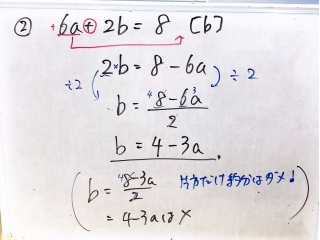 ② +6a + 2b = 8 [b]
2×b = 8 - 6a
÷2 ÷2
b = (⁴8 - 6³a)/2
b = 4 - 3a
b = (⁴8 - 3a)/2 片方だけ約分はダメ!
= 4 - 3aは×